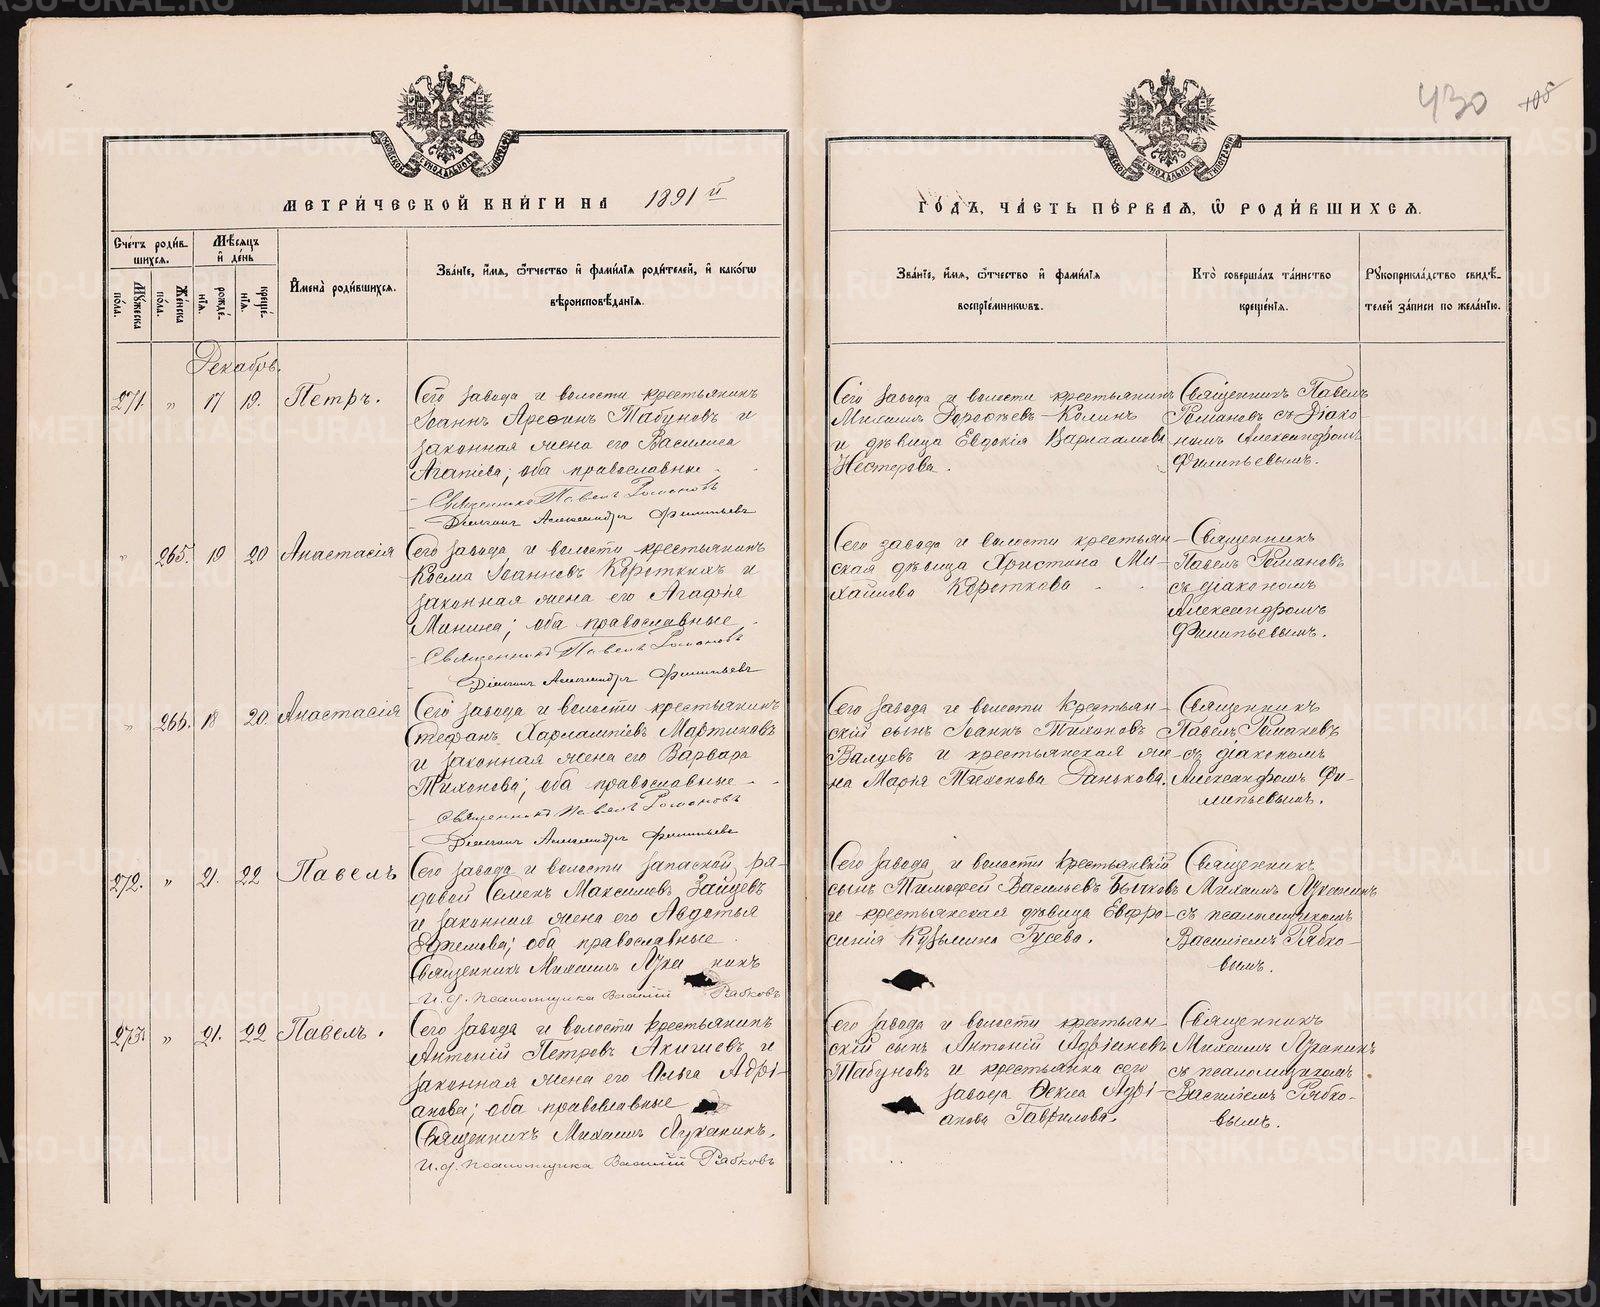 430
108
МЕТРИ́ЧЕСКОЙ КНИ́ГИ НА 1891 й
ГО́ДЪ, ЧА́СТЬ ПЕ́РВАЯ, Ѿ РОДИ́ВШИХСЯ.
Сче́тъ роди́в-
шихся.
Мѣ́сяцъ
и҆ де́нь
Му́жеска
пола.
Же́нска
пола.
рожде́-
нїя.
креще́-
нїя.
И҆мена̀ роди́вшихся.
Зва́нїе, и҆́мя, ѻ҆́тчество и҆ фами́лїя роди́телей, и҆ како́гѡ
вѣроисповѣ́данїя.
Зва́нїе, и҆́мя, ѻ҆́тчество и҆ фами́лїя
воспрїе́мникѡвъ.
Кто̀ соверша́лъ та́инство
креще́нїя.
Рꙋкоприкла́дство свидѣ́-
телей за́писи по жела́нїю.
Декабрь.
271. „ 17 19. Петръ.
Сего завода и волости крестьянинъ
Іоаннъ Табуновъ и
законная жена его Василиса
оба православные
Священникъ Павелъ Романовъ
Діаконъ Александръ Филипьевъ
Сего завода и волости крестьянинъ
Михаилъ
и дѣвица Евдокія Варлаамова
Нестерова.
Священникъ Павелъ
Романовъ съ діако-
номъ Александромъ
Филипьевымъ.
„ 265. 19 20 Анастасія
Сего завода и волости крестьянинъ
Косма Іоанновъ Короткихъ и
законная жена его Агафія
Минина; оба православные
Священникъ Павелъ Романовъ
Діаконъ Александръ Филипьевъ
Сего завода и волости крестьян-
ская дѣвица Христина Ми-
хаилова Короткова
Священникъ
Павелъ Романовъ
съ діакономъ
Александромъ
Филипьевымъ.
„ 266. 18 20 Анастасія
Сего завода и волости крестьянинъ
Стефанъ Харлампіевъ Мартиновъ
и законная жена его Варвара
Тихонова; оба православные
Священникъ Павелъ Романовъ
Діаконъ Александръ Филипьевъ
Сего завода и волости крестьян-
скій сынъ Іоаннъ Тихоновъ
Валуевъ и крестьянская же-
на Марія Тихонова Данькова.
Священникъ
Павелъ Романовъ
съ діакономъ
Александромъ Фи-
липьевымъ.
272. „ 21. 22 Павелъ
Сего завода и волости запасной ря-
довой Семенъ Максимовъ Зайцевъ
и законная жена его Авдотья
Ефремова; оба православные
Священникъ Михаилъ Луканинъ
И. д. псаломщика Василій Рябковъ
Сего завода и волости крестьянскій
сынъ Тимофей Васильевъ Бычковъ
и крестьянская дѣвица Евфро-
синія Кузьмина Гусева.
Священникъ
Михаилъ Луканинъ
съ псаломщикомъ
Василіемъ Рябко-
вымъ.
273. „ 21. 22 Павелъ.
Сего завода и волости крестьянинъ
Антоній Петровъ Акишевъ и
законная жена его Ольга Адрі-
анова; оба православные
Священникъ Михаилъ Луканинъ.
И. д. псаломщика Василій Рябковъ
Сего завода и волости крестьян-
скій сынъ Антоній Адріановъ
Табуновъ и крестьянка сего
завода Ѳекла Адрі-
анова Гаврилова.
Священникъ
Михаилъ Луканинъ
съ псаломщикомъ
Василіемъ Рябко-
вымъ.
METRIKI.GASO-URAL.RU